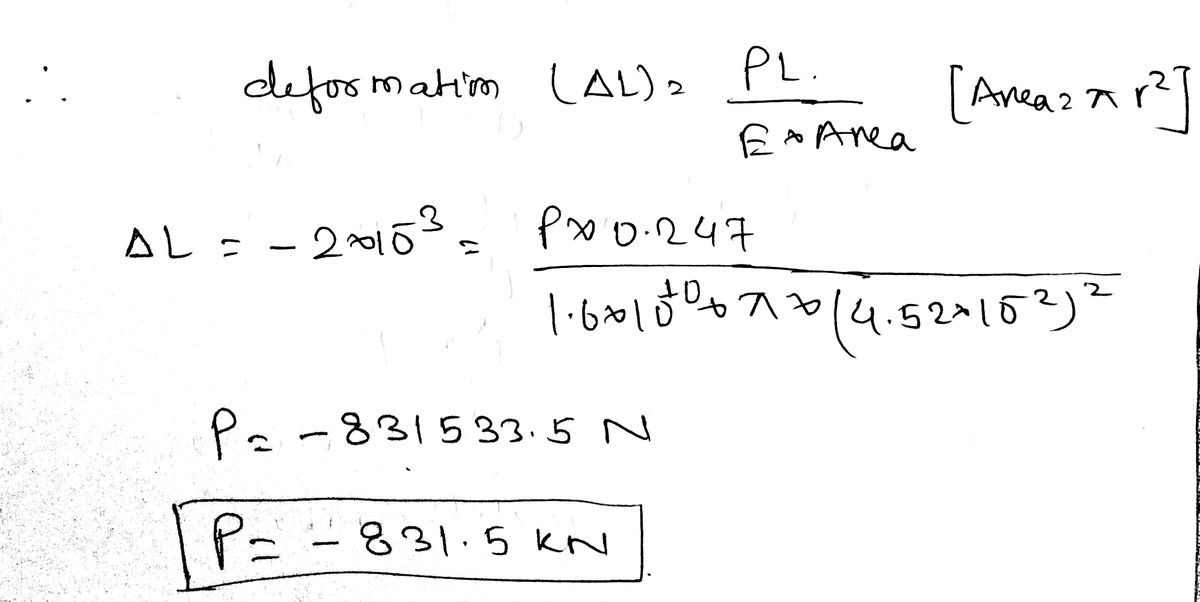 ∴ deformation (ΔL) = PL. / E × Area [Area = π r²]
ΔL = - 2×10⁻³ = P × 0.247 / 1.6×10¹⁰ × π × (4.52×10⁻²)²
P = - 831533.5 N
P = - 831.5 KN